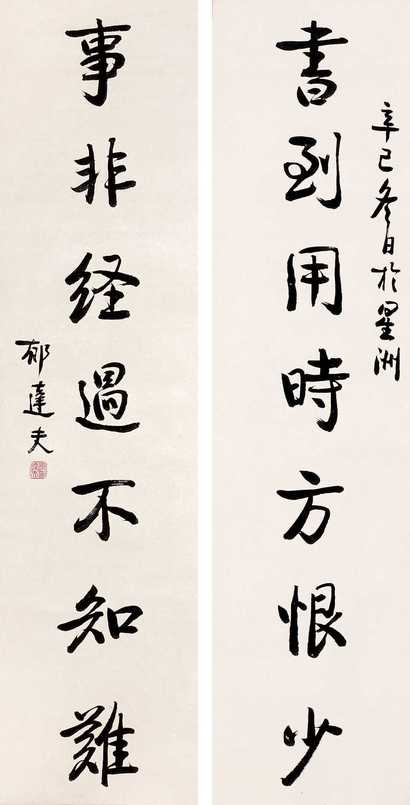 書到用時方恨少
辛巳冬日於星洲
事非経過不知難
郁達夫